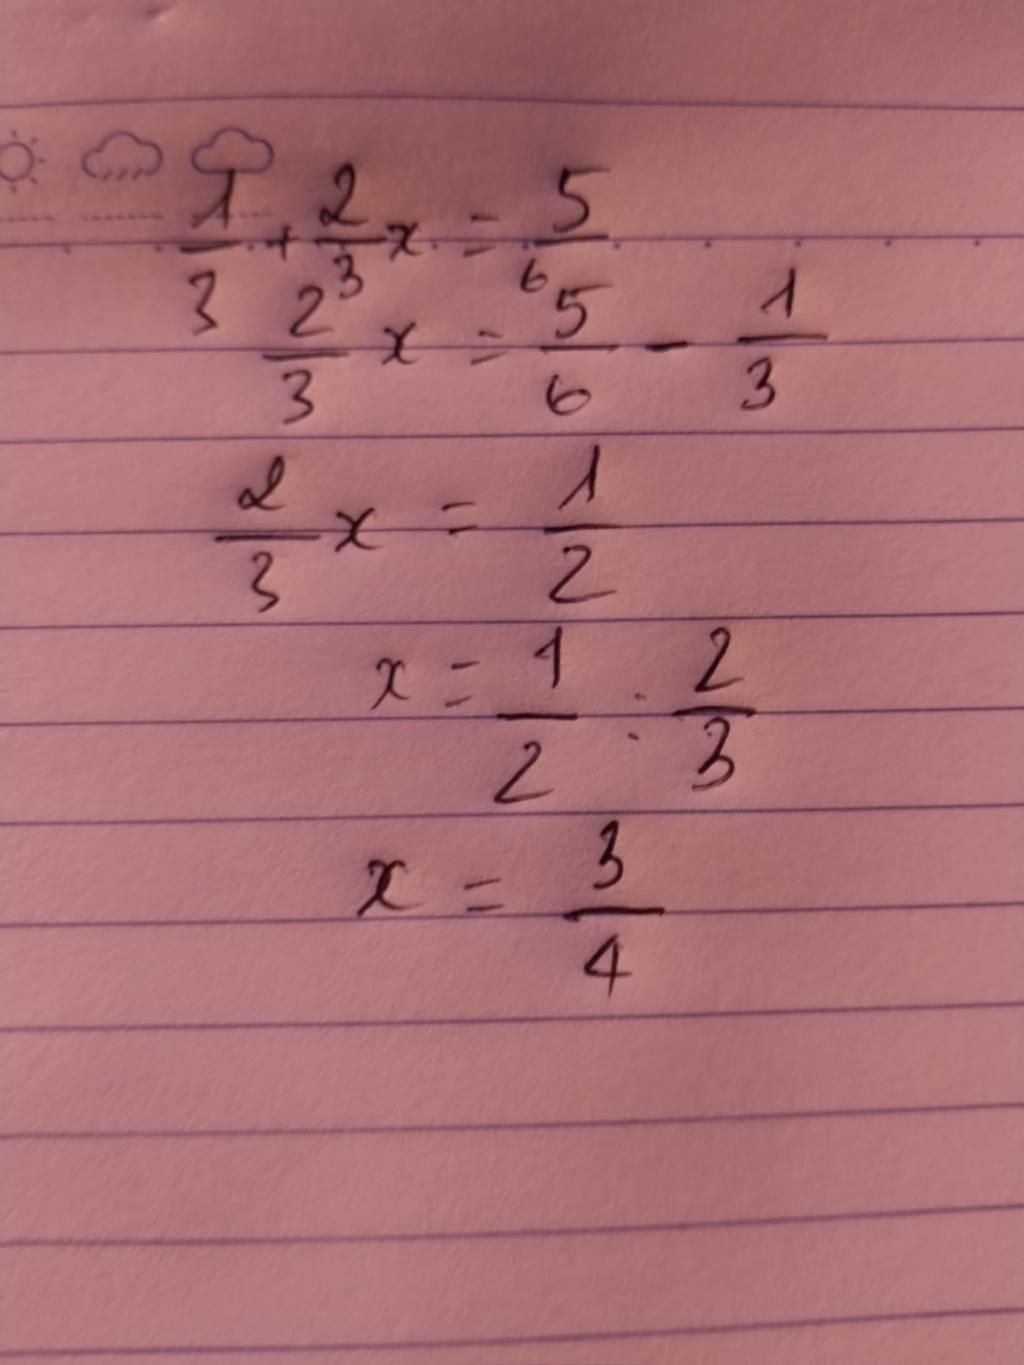 1/3 + 2/3 x = 5/6
2/3 x = 5/6 - 1/3
2/3 x = 1/2
x = 1/2 : 2/3
x = 3/4